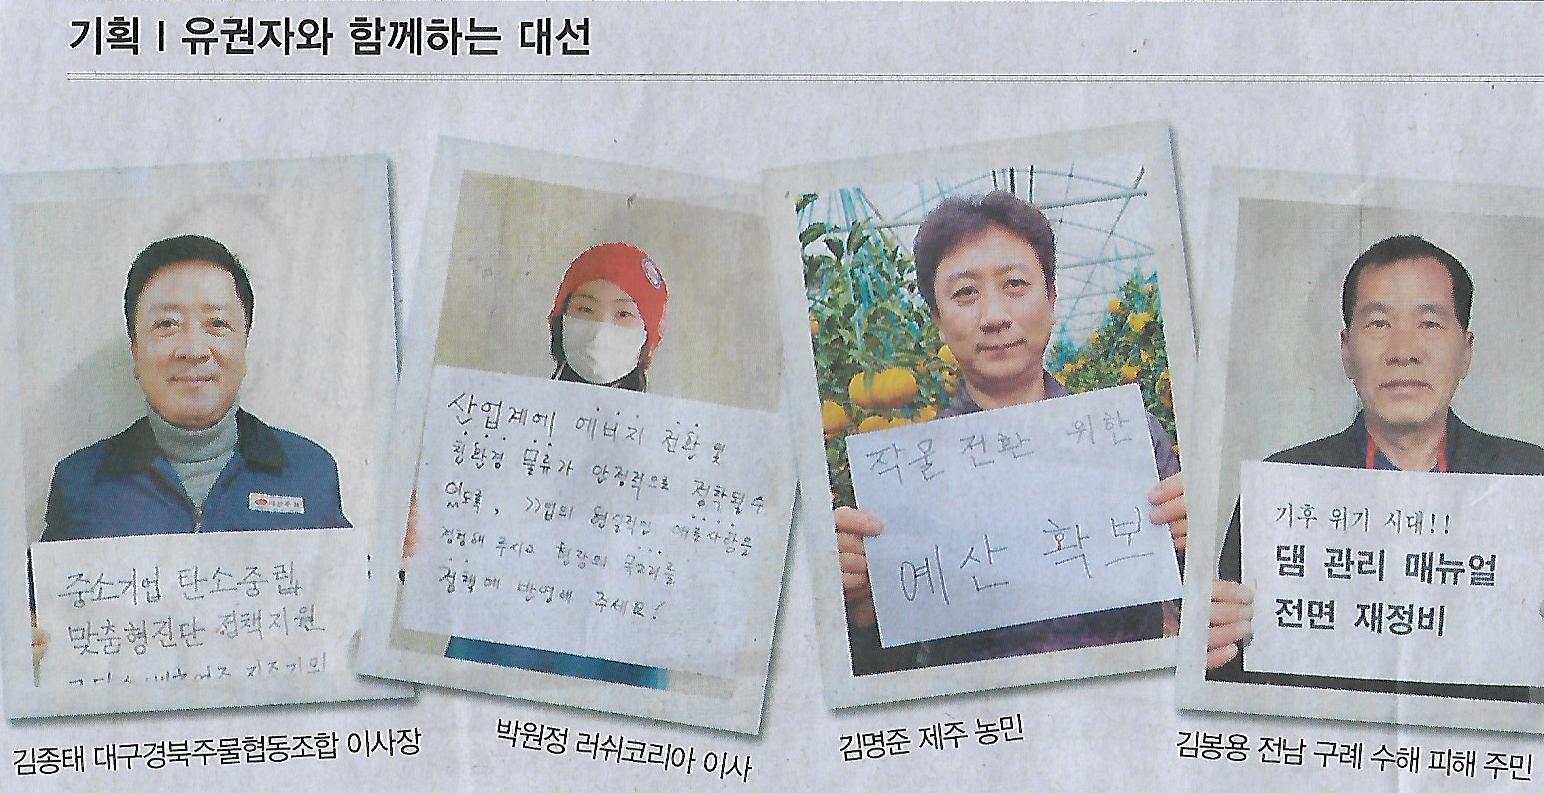 기획 I 유권자와 함께하는 대선
중소기업 탄소중립
맞춤형진단 정책지원
김종태 대구경북주물협동조합 이사장
산업계에 에너지 전환 및
친환경 물류가 안정적으로 정착될 수
있도록, 기업의 현실적인 애로사항을
경청해 주시고 현장의 목소리를
정책에 반영해 주세요!
박원정 러쉬코리아 이사
작물 전환 위한
예산 확보
김명준 제주 농민
기후 위기 시대!!
댐 관리 매뉴얼
전면 재정비
김봉용 전남 구례 수해 피해 주민